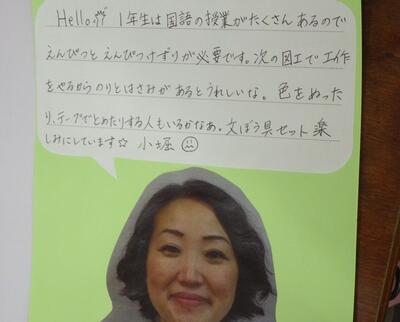 Hello 1年生は国語の授業がたくさんあるので
えんぴつとえんぴつけずりが必要です。次の図工で工作
をやるからのりとはさみがあるとうれしいな。色をぬった
り、テープでとめたりする人もいるかなあ。文ぼう具セット楽
しみにしています☆ 小堀